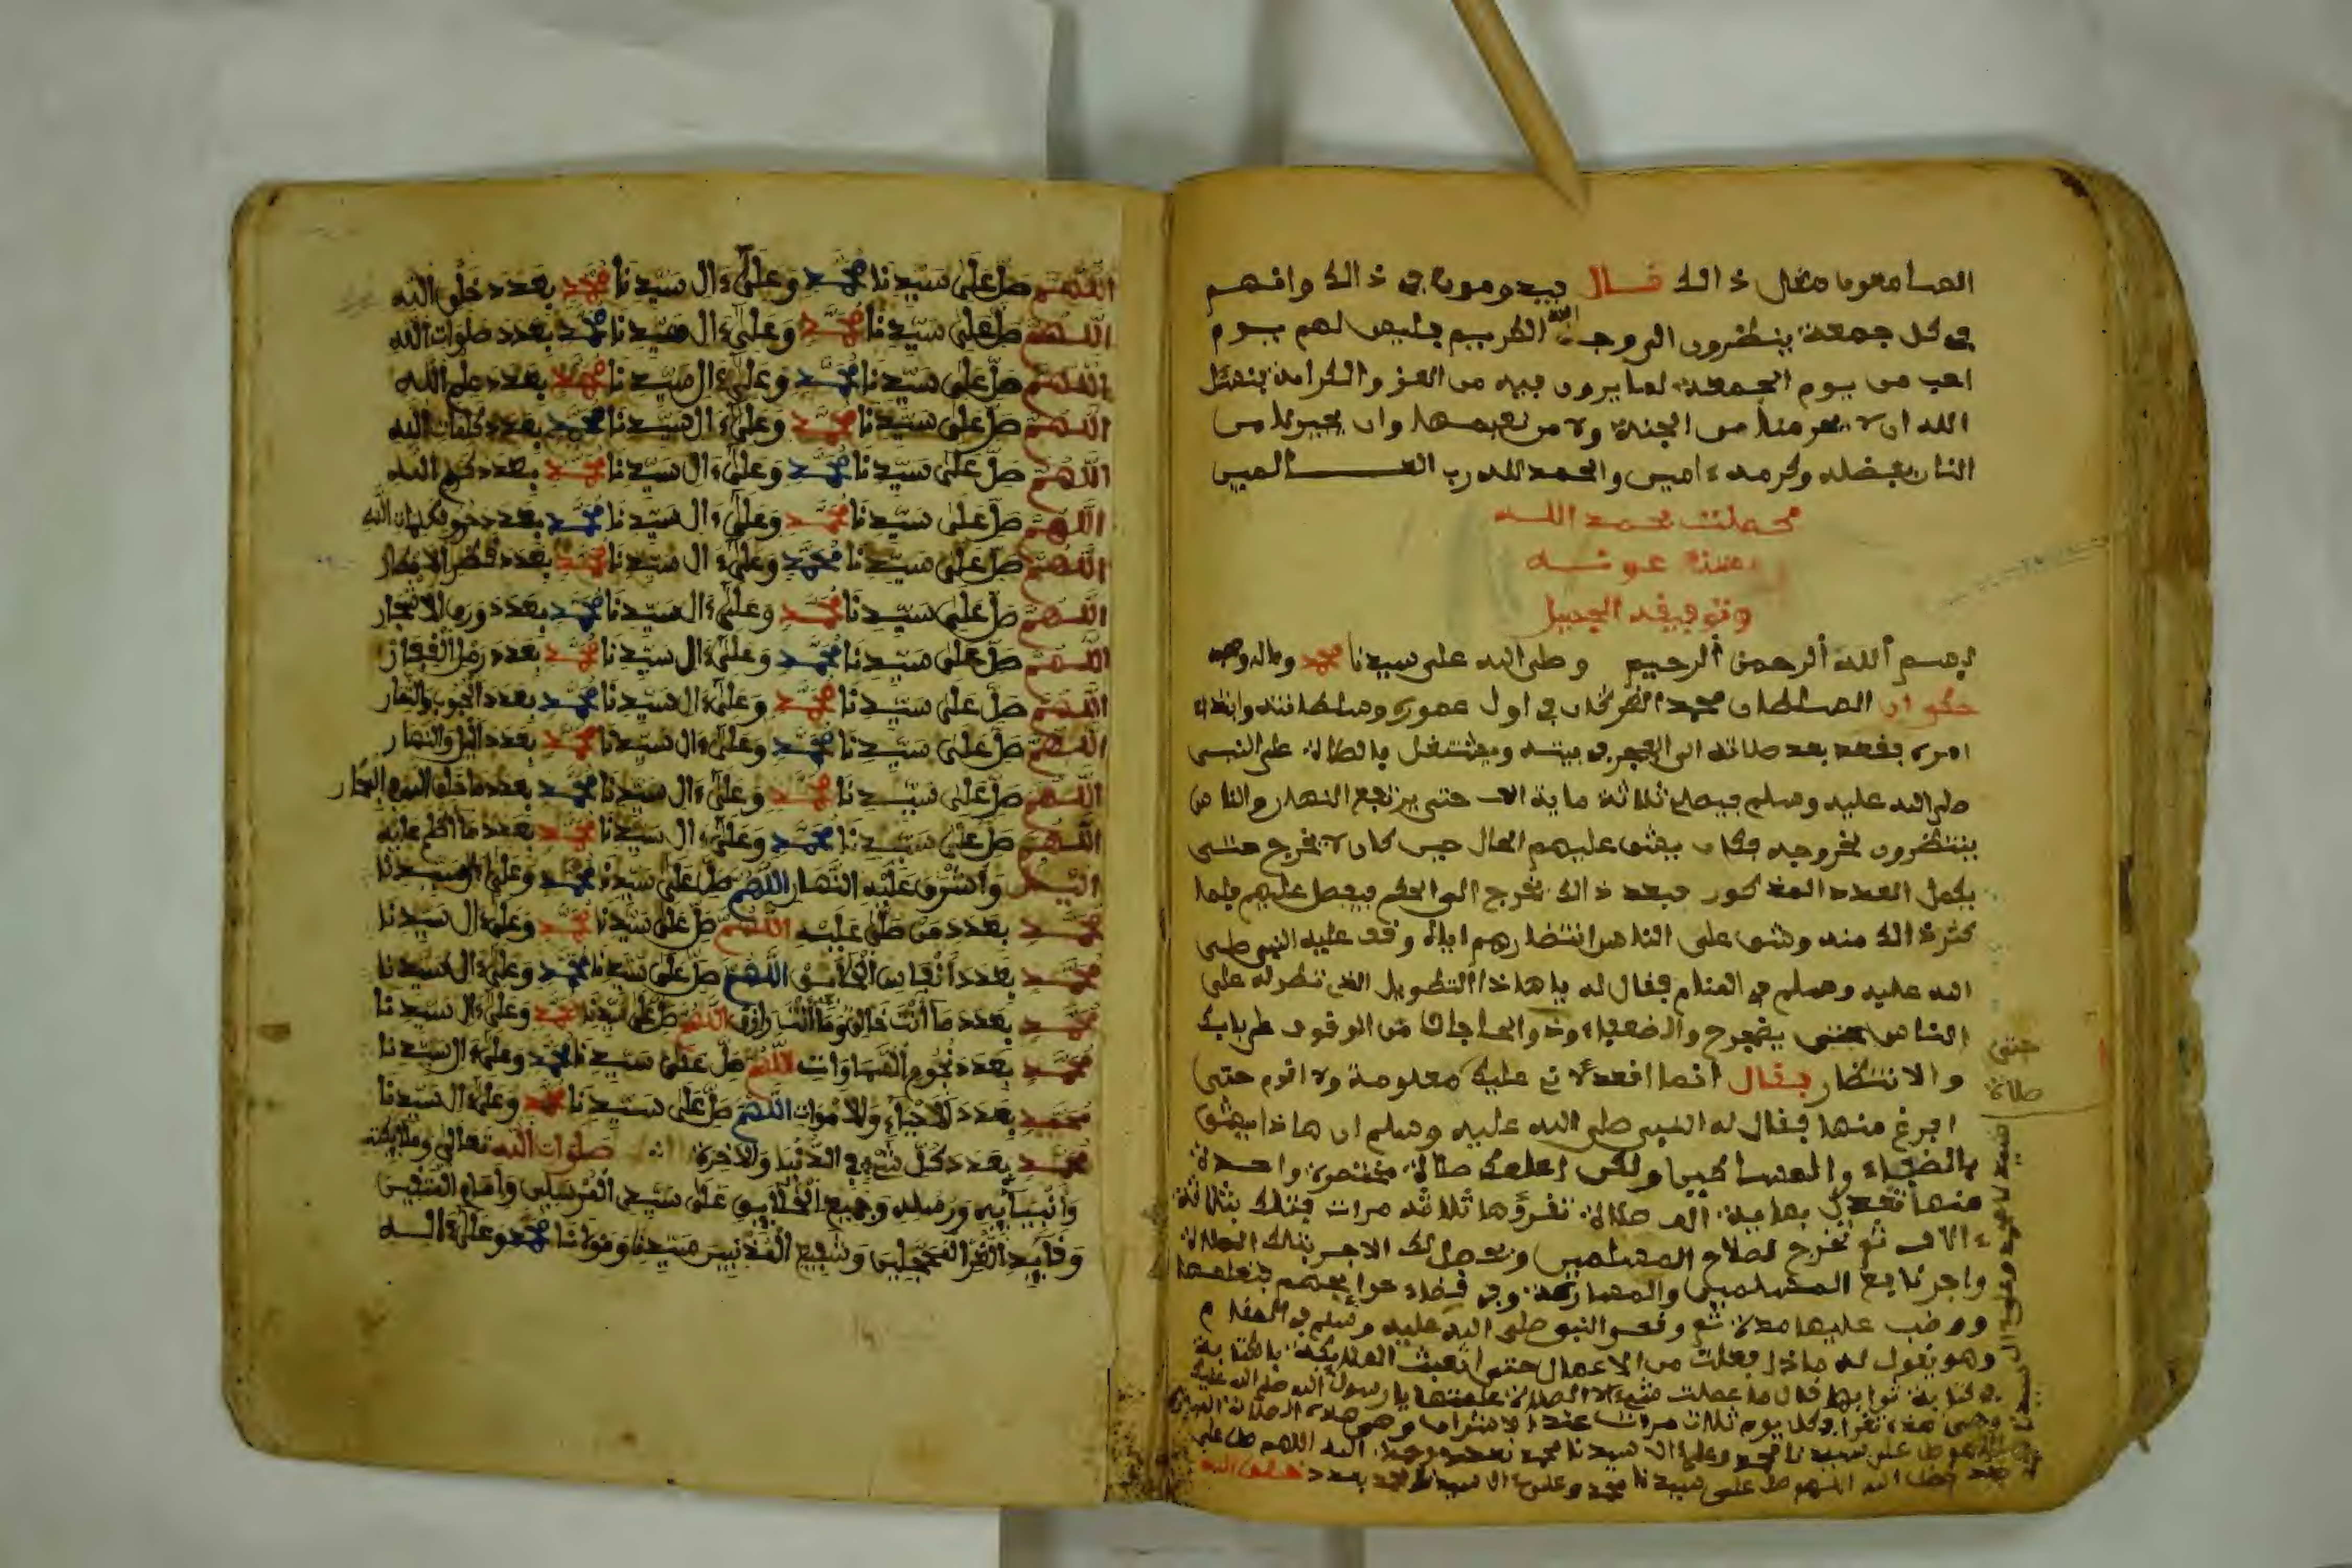 الصامعوما مثال ذالك قال بيدومون في ذالك وانهم
في كل جمعة ينظرون الى وجه الله الكريم فليس لهم يوم
احب من يوم الجمعة لما يرون فيه من العز والكرامة نسئل
الله ان لا يحرمنا من الجنة ولا من نعيمها وان يجيرنا من
النار بفضله وكرمه ءامين والحمد لله رب العالمين
كملت بحمد الله
وحسن عونه
وتوفيقه الجميل
بسم الله الرحمن الرحيم وصلى الله على سيدنا محمد وءاله وصحبه
حكي ان السلطان محمد الغزنوي كان في اول عمره وسلطانته وانفاذ
امره يقعد بعد صلاته الى الفجر في بيته ويشتغل بالصلاة على النبي
صلى الله عليه وسلم فيصلي ثلاثة ماية الف حتى يرتفع النهار والناس
ينتظرون خروجه فكان يشق عليهم الحال حين كان لا يخرج حتى
يكمل العدد المذكور فبعد ذالك يخرج الى الحكم فيفصل عليهم فلما
كثر ذالك منه وشق على الناس انتضارهم اياه وقف عليه النبي صلى
الله عليه وسلم في المنام فقال له يا هاذا التطويل الذي تطوله على
الناس حتى يضجر والضعفاء وذو الحاجات من الوقوف على بابك
والانتظار فقال انما اقعد لان علي معلومة ولا اقوم حتى
افرغ منها فقال له النبي صلى الله عليه وسلم ان هاذا يشق
بالضعفاء والمساكين ولكن اعلمك صلاة مختصرة واحدة
منها تعدل بماية الف صلاة تقرؤها ثلاثة مرات فتلك بثلاثة
ءالاف ثم تخرج لصلاح المسلمين ويحصل لك الاجر بتلك الصلاة
واجر نايع المسلمين والمسارعة وفي قضاء حوايجهم فتعلمها
ووضب عليها مدة ثم وقف النبي صلى الله عليه وسلم في المنام
وهو يقول له ماذا فعلت من الاعمال حتى اتعبت الملايكة بالكتابة
في كتابة ثوابها قال ما عملت شيء الا الصلاة علمتها يا رسول الله صلى الله عليك
وهي هذه تقرا في كل يوم ثلاث مرات
اللهم صل على سيدنا محمد وعلى ءال سيدنا محمد بعدد رحمة الله اللهم صل على
بعدد فضل الله اللهم صل على سيدنا محمد وعلى ءال سيدنا محمد بعدد خلق الله
حتى
صلاة
اللهم صل على سيدنا محمد وعلى ءال سيدنا محمد بعدد خلق الله
اللهم صل على سيدنا محمد وعلى ءال سيدنا محمد بعدد صلوات الله
اللهم صل على سيدنا محمد وعلى ءال سيدنا محمد بعدد علم الله
اللهم صل على سيدنا محمد وعلى ءال سيدنا محمد بعدد كلمات الله
اللهم صل على سيدنا محمد وعلى ءال سيدنا محمد بعدد كرم الله
اللهم صل على سيدنا محمد وعلى ءال سيدنا محمد بعدد حروف كلمات الله
اللهم صل على سيدنا محمد وعلى ءال سيدنا محمد بعدد قطر الامطار
اللهم صل على سيدنا محمد وعلى ءال سيدنا محمد بعدد ورق الاشجار
اللهم صل على سيدنا محمد وعلى ءال سيدنا محمد بعدد رمل القفار
اللهم صل على سيدنا محمد وعلى ءال سيدنا محمد بعدد الحبوب والثمار
اللهم صل على سيدنا محمد وعلى ءال سيدنا محمد بعدد اليل والنهار
اللهم صل على سيدنا محمد وعلى ءال سيدنا محمد بعدد ما خلق الله في البحار
اللهم صل على سيدنا محمد وعلى ءال سيدنا محمد بعدد ما اظلم عليه
اليل واشرق عليه النهار اللهم صل على سيدنا محمد وعلى ءال سيدنا
محمد بعدد من صلى عليه اللهم صل على سيدنا محمد وعلى ءال سيدنا
محمد بعدد انفاس الخلايق اللهم صل على سيدنا محمد وعلى ءال سيدنا
محمد بعدد ما انت خالق وما انت رازق اللهم صل على سيدنا محمد وعلى ءال سيدنا
محمد بعدد نجوم السماوات اللهم صل على سيدنا محمد وعلى ءال سيدنا
محمد بعدد الاحياء والاموات اللهم صل على سيدنا محمد وعلى ءال سيدنا
محمد بعدد كل شيء في الدنيا والاخرة صلوات الله تعالى وملايكته
وانبيايه ورسله وجميع الخلايق على سيد المرسلين وامام المتقين
وقايد الغر المحجلين وشفيع المذنبين سيدنا ومولانا محمد وعلى ءاله